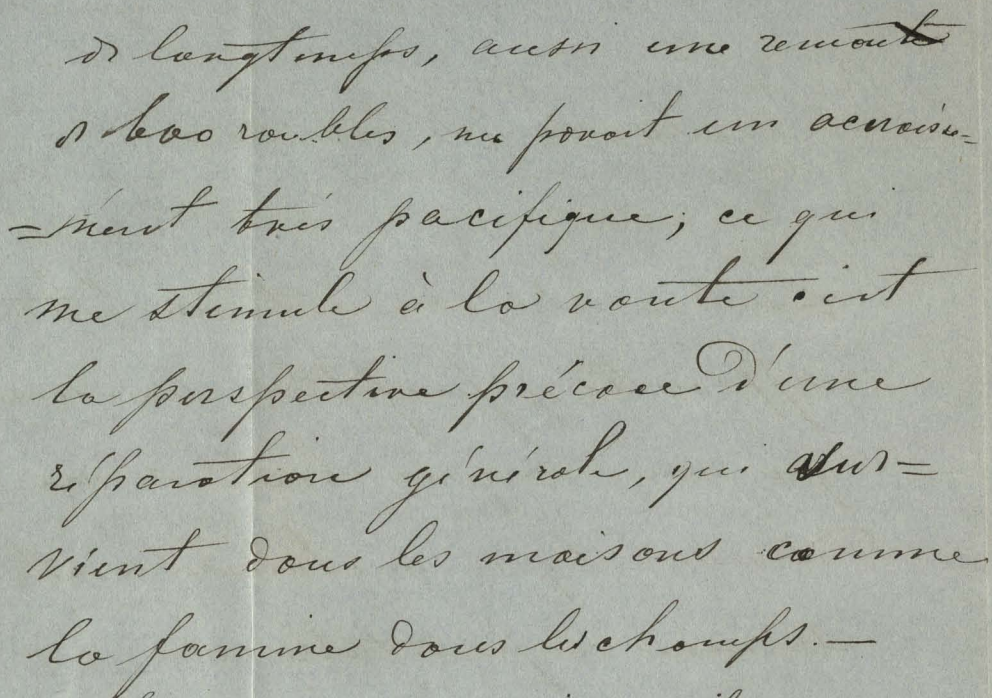 de longtemps, aussi une remonte
de 600 roubles, me paroit un accroisse=
=ment très pacifique; ce qui
me stimule à la vente c'est
la perspective précoce d'une
réparation générale, qui sur=
vient dans les maisons comme
la famine dans les champs. —